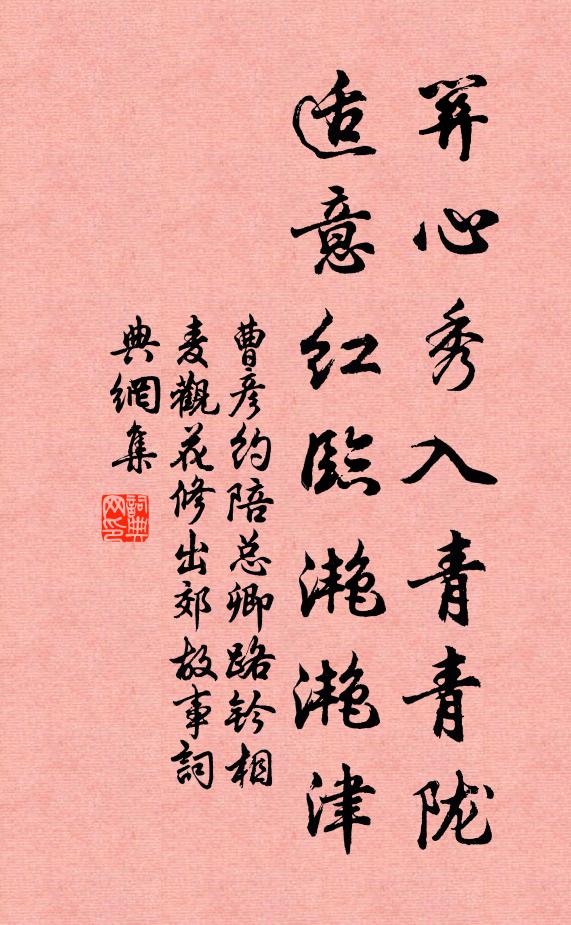 筭心秀入青青陇
适意红临滟滟津
曹彦约陪总卿路钤相
麦觀花修出郊故事詞
典網集
詞典网印